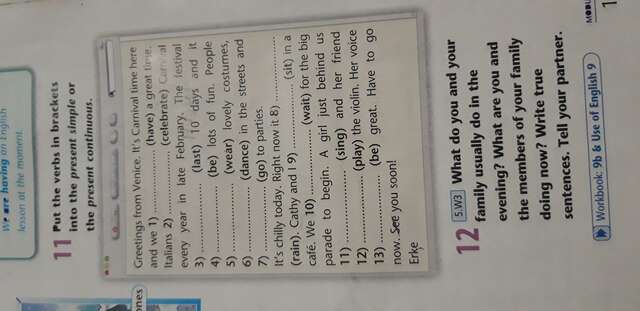 We are having an English
lesson at the moment.
11 Put the verbs in brackets
into the present simple or
the present continuous.
Greetings from Venice. It's Carnival time here
and we 1) .................. (have) a great time.
Italians 2) .................. (celebrate) Carnival
every year in late February. The festival
3) .................. (last) 10 days and it
4) .................. (be) lots of fun. People
5) .................. (wear) lovely costumes,
6) .................. (dance) in the streets and
7) .................. (go) to parties.
It's chilly today. Right now it 8) ..................
(rain). Cathy and I 9) .................. (sit) in a
café. We 10) .................. (wait) for the big
parade to begin. A girl just behind us
11) .................. (sing) and her friend
12) .................. (play) the violin. Her voice
13) .................. (be) great. Have to go
now. See you soon!
Erke
12 5.W3 What do you and your
family usually do in the
evening? What are you and
the members of your family
doing now? Write true
sentences. Tell your partner.
Workbook: 9b & Use of English 9